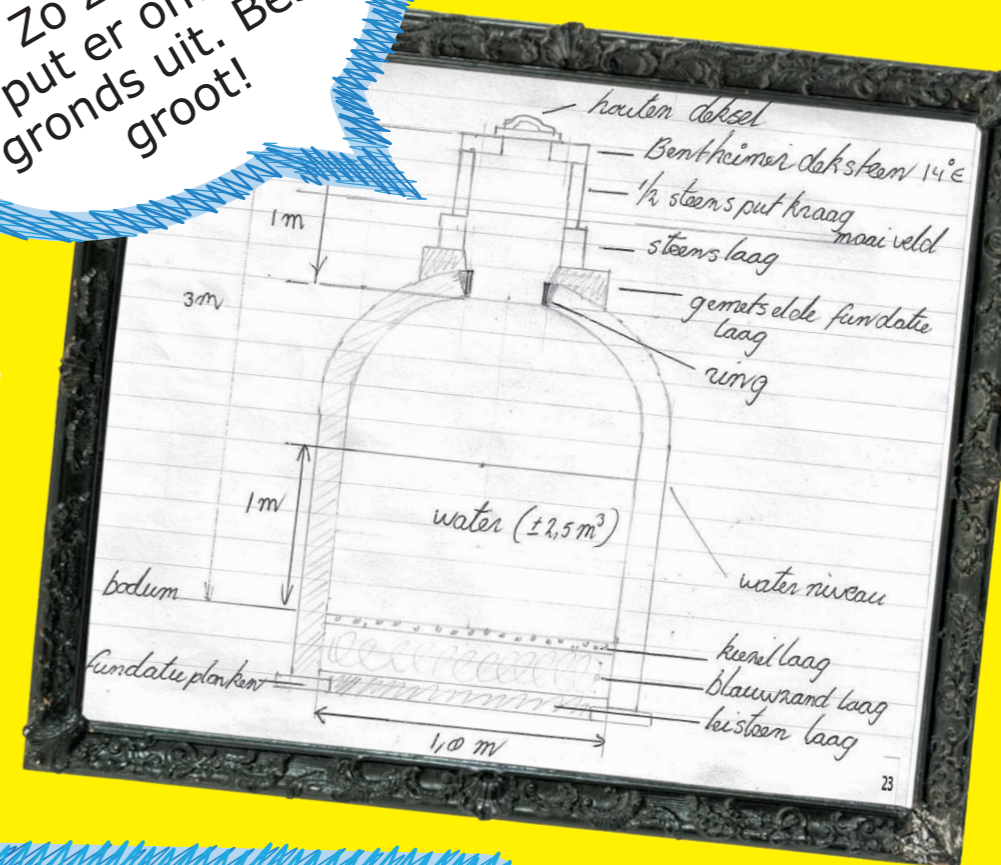 Zo
put er
gronds uit.
groot!
houten deksel
Bentheimer deksteen
½ steens put kraag
maaiveld
1 m
steenslaag
3m
gemetselde fundatie
laag
ring
1 m
water (±2,5 m³)
water niveau
bodum
kiezellaag
fundatieplanken
blauwzand laag
leisteen laag
1,8 m
23